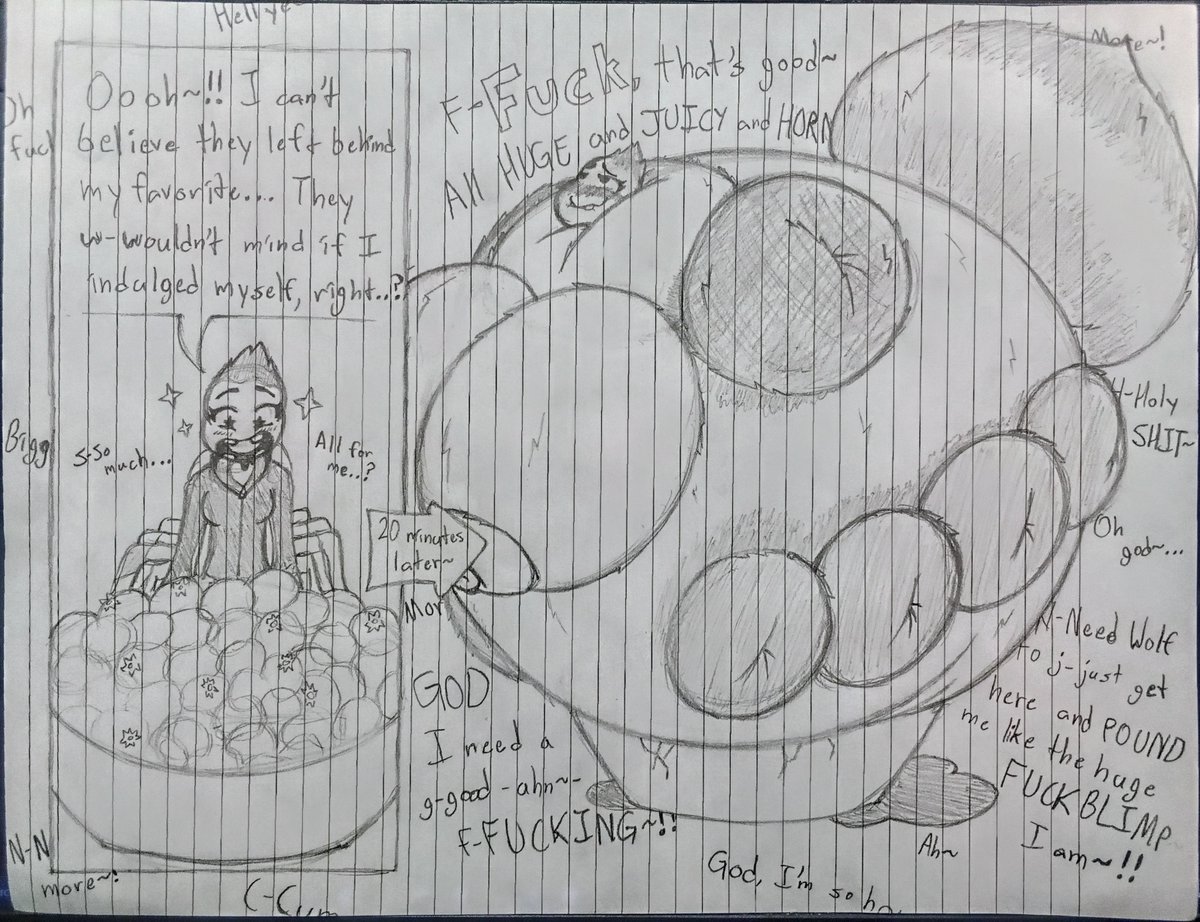 Oooh~!! I can't
believe they left behind
my favorite.... They
w-wouldn't mind if I
indulged myself, right..?
S-So
much...
All for
me..?
20 minutes
later~
F-FUCK, that's good~
All HUGE and JUICY and HORN
More~!
H-Holy
SHIT~
Oh
god~...
N-Need Wolf
to j-just get
here and POUND
me like the huge
FUCKBLIMP
I am~!!
Mor
GOD
I need a
g-good -ahn~-
F-FUCKING~!!
Ah~
God, I'm so ho
Hellye
Oh
fuc
Bigg
N-N
more~!
C-Cum